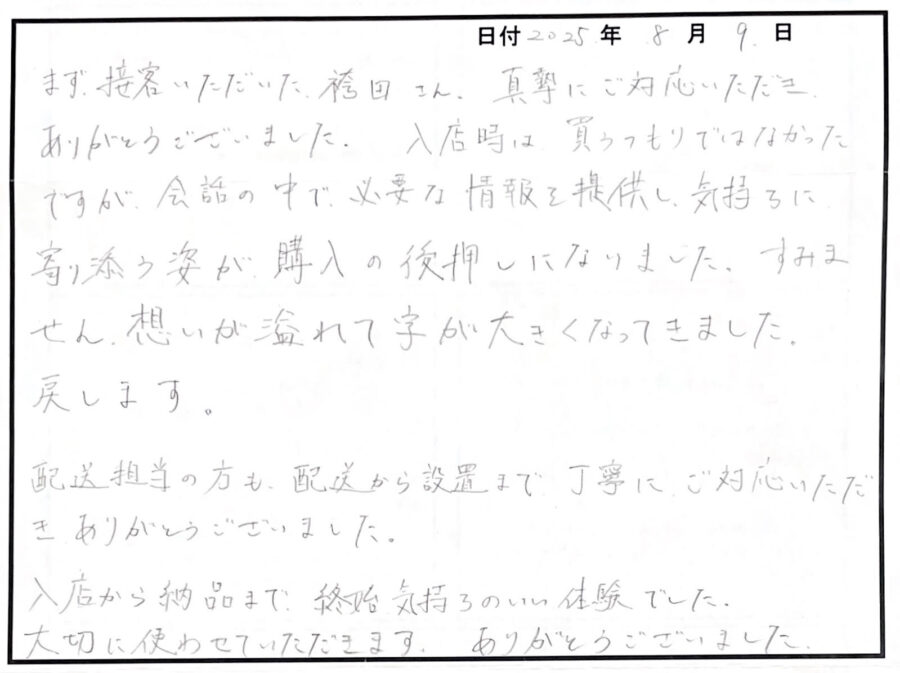 日付 2025 年 8 月 9 日
まず、接客いただいた、袴田さん、真摯にご対応いただき、
ありがとうございました。 入店時は、買うつもりではなかった
ですが、会話の中で、必要な情報を提供し、気持ちに
寄り添う姿が、購入の後押しになりました。すみま
せん、想いが溢れて字が大きくなってきました。
戻します。
配送担当の方も、配送から設置まで、丁寧に、ご対応いただ
き、ありがとうございました。
入店から納品まで、終始、気持ちのいい体験でした。
大切に使わせていただきます。 ありがとうございました。